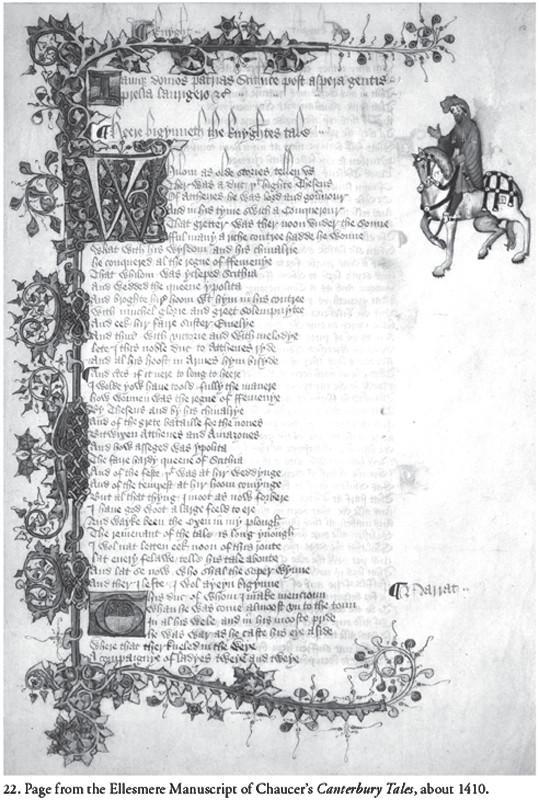 Knyght
Iamque domos patrias Scithice post aspera gentis
prelia laurigero &c
Heere bigynneth the knyghtes tale
Whilom as olde stories tellen vs
Ther was a duc þt highte Theseus
Of Atthenes he was lord and gouernour
And in his tyme swich a Conquerour
That gretter was ther noon vnder the sonne
Ful many a riche contree hadde he wonne
What with his wysdom and his chiualrie
he conquered al the regne of ffemenye
That whilom was ycleped Scithia
And wedded the queene ypolita
And broghte hir hoom with hym in his contree
With muchel glorie and greet solempnytee
And eek hir faire suster Emelye
And thus with victorie and with melodye
lete I this noble duc to Atthenes ryde
And al his hoost in Armes hym bisyde
And certes if it nere to long to heere
I wolde yow haue toold fully the manere
how wonnen was the regne of ffemenye
By Theseus and by his chiualrye
And of the grete bataille for the nones
Bitwixen Atthenes and Amazones
And how asseged was ypolita
The faire hardy queene of Scithia
And of the feste þt was at hir weddynge
And of the tempest at hir hoom comynge
But al that thyng I moot as now forbere
I haue god woot a large feeld to ere
And wayke been the oxen in my plough
The remenant of the tale is long ynough
I wol nat letten eek noon of this route
lat euery felawe telle his tale aboute
And lat se now who shal the soper wynne
And ther I lefte I wol ayeyn bigynne
This duc of whom I make mencioun
Whan he was come almoost vn to the toun
In al his wele and in his mooste pride
he was war as he caste his eye aside
Where that ther kneled in the weye
A compaignye of ladyes tweye and tweye
Narrat
22. Page from the Ellesmere Manuscript of Chaucer's Canterbury Tales, about 1410.